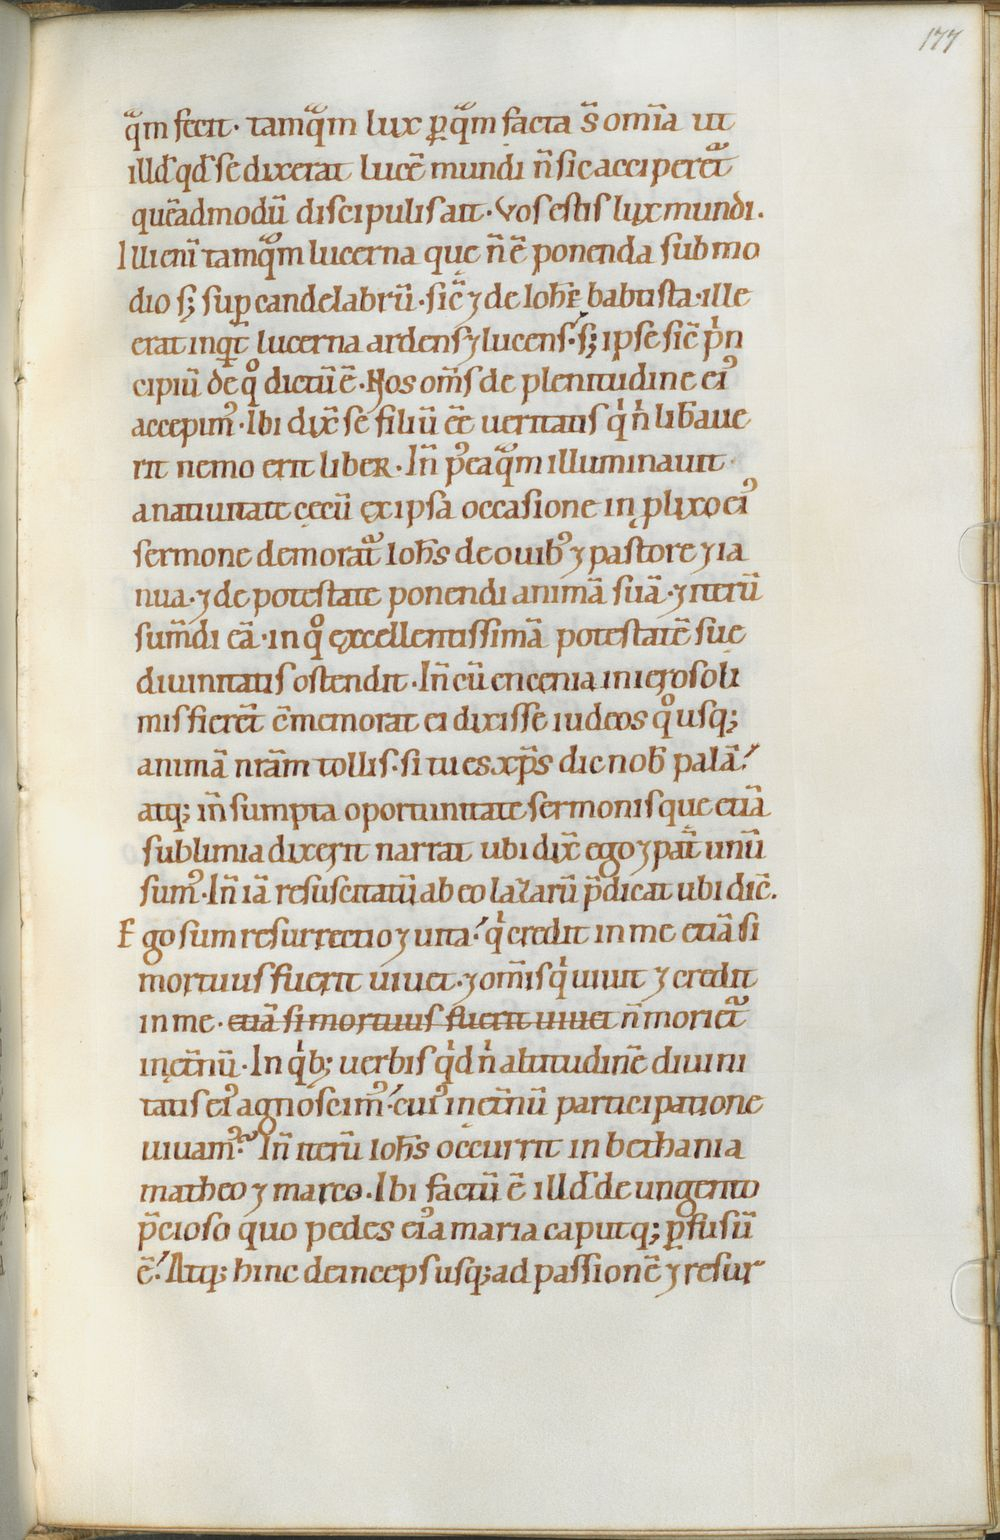 177
qᷓm fecit· tamqᷓm lux ꝑqᷓm facta s̄ om̄ia ut
illđ qđ se dixerat lucē mundi n̄ sic acciperet᷑
quēadmodū discipulis ait· Vos estis lux mundi.
Illi eni᷑ tamqᷓm lucerna quę n̄ ē ponenda sub mo
dio sꝫ suꝑ candelabrū· sic̄ ⁊ de Ioh̄e babtista· ille
erat inqͥt lucerna ardens ⁊ lucens· sꝫ ipse sic̄ pͥn
cipiū de qͦ dictū ē· Nos om̄s de plenitudine eiꝰ
accepimꝰ· Ibi dix̄ se filiū ēē ueritatis qͥ n̄ libaue
rit nemo erit liber· In̄ pꝰeaqᷓm illuminauit
a natiuitate cęcū ex ipsa occasione in plixo eiꝰ
sermone demorat᷑ Ioh̄s de ouibꝰ ⁊ pastore ⁊ ia
nua· ⁊ de potestate ponendi animā suā· ⁊ iterū
sum̄di eā· in qͦ excellentissimā potestatē suę
diuinitatis ostendit· In̄ cū encenia in ierosoli
mis fieret᷑ c̄memorat ei dixisse iudeos qͦusqꝫ
animā nr̄am tollis· si tu es xp̄s dic nob̄ palā·
atqꝫ in̄ sumpta oportunitate sermonis quę etiā
sublimia dixerit narrat ubi dix̄ ego ⁊ pat̄ unū
sumꝰ· In̄ iā resuscitatū ab eo lazarū p̄dicat ubi dic̄.
Ego sum resurrectio ⁊ uita· qͥ credit in me etiā si
mortuus fuerit uiuet· ⁊ om̄is qͥ uiuit ⁊ credit
in me· etiā si mortuus fuerit uiuet n̄ moriet᷑
in ęt̄nū· In qͥbꝫ uerbis qͥd n̄ altitudinē diuini
tatis eiꝰ agnoscimꝰ· cuiꝰ in et̄nū participatione
uiuamꝰ· In̄ iterū Ioh̄s occurrit in bethania
matheo ⁊ marco· Ibi factū ē illđ de ungento
p̄cioso quo pedes eiꝰ a maria caputqꝫ ꝑfusū
ē· Atqꝫ hinc deinceps usqꝫ ad passionē ⁊ resur